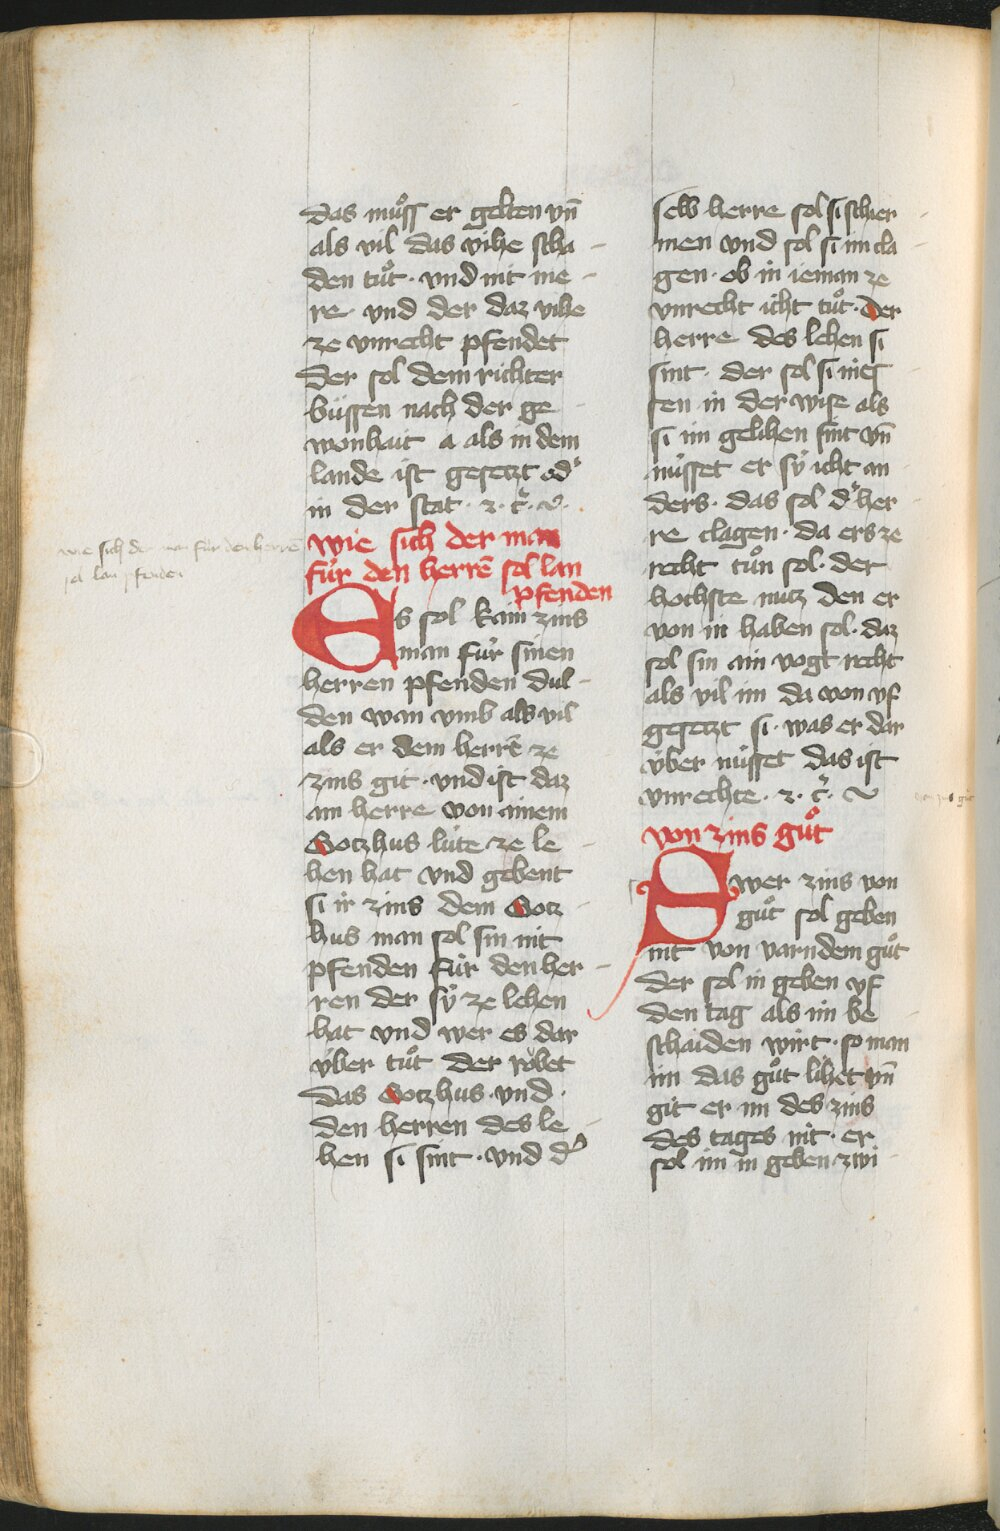 das muͦss er gelten vn̄
als vil das vihe scha
den tuͦt · vnd nit me
re · vnd der daz vihe
ze vnrecht pfendet
Der sol dem richter
buͤssen nach der ge
wonhait a als in dem
lande ist gesetzt od᾽
in der stat · ꝛ · c̄ · v ·
wie sich der man
fuͤr den herrē sol lan
pfenden
Es sol kain zins
man fuͤr sinen
herren pfenden dul
den wan vmb als vil
als er dem herrē ze
zins git · vnd ist daz
ain herre von ainem
Gotzhus luͤte ze le
hen hat vnd gebent
si ir zins dem Gotz
hus man sol sin nit
pfenden fuͤr den her
ren der sÿ ze lehen
hat vnd wer es dar
vͤber tuͦt der robet
das Gotzhus · vnd ·
den herren des le
hen si sint · vnd d᾽
wie sich der man fuͤr den herrē
sol lan pfenden
selb herre sol si schier
men vnd sol si im cla
gen · ob in ieman ze
vnrecht icht tuͦt · Der
herre des lehen si
sint · der sol si nies
sen in der wise als
si im gelihen sint vn̄
nuͤsset er sÿ icht an
ders · das sol d᾽ her
re clagen · da ers ze
recht tuͦn sol · der
hochste nutz den er
von in haben sol · daz
sol sin ain vogt recht
als vil im da von vf
gesetzt si · was er dar
vͤber nuͤsset das ist
vnrechte · ꝛ · c̄ ·
von zins guͦt
Swer zins von
guͦt sol geben
nit von varndem guͦt
der sol in geben vf
den tag als im be
schaiden wirt · so man
im das guͦt lihet vn̄
git er im des zins
des tages nit · er
sol im in geben zwi
von zins guͦt